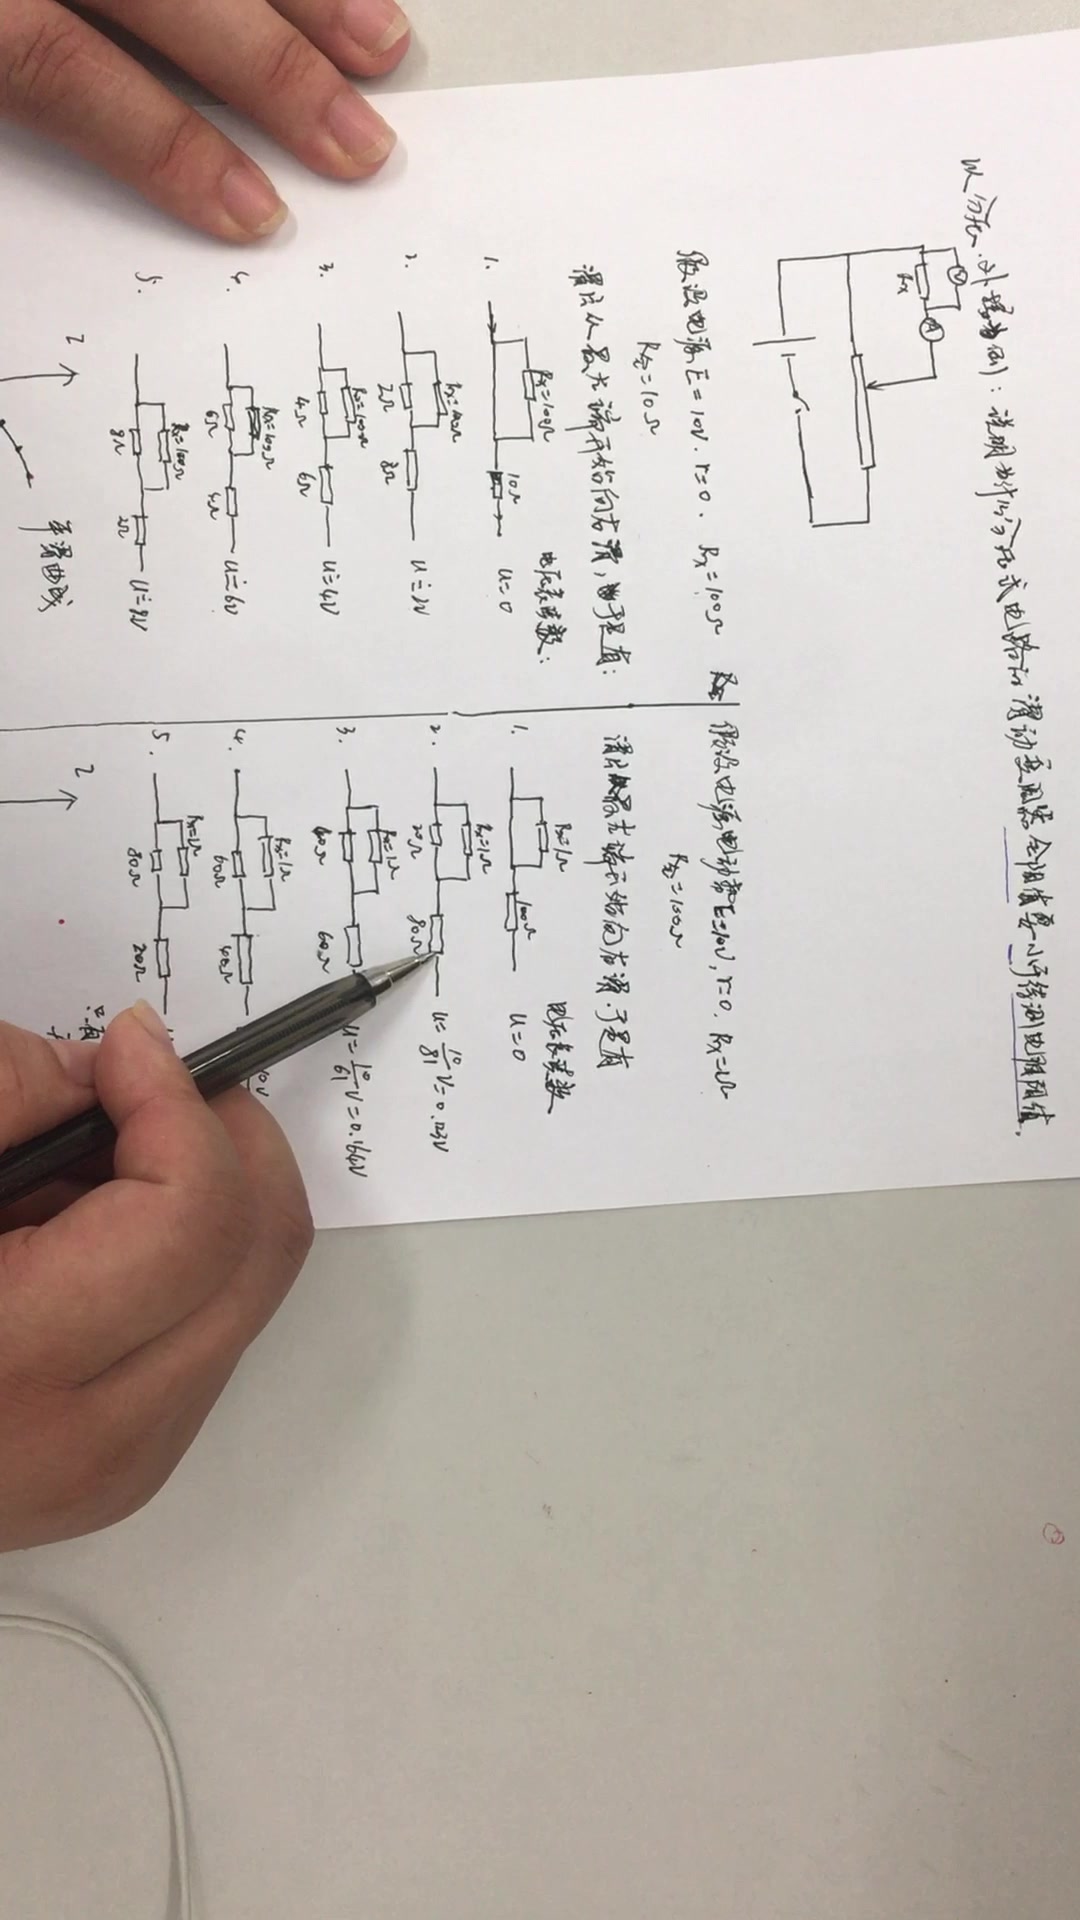 以分压、外接为例：说明为什么分压式电路的滑动变阻器全阻值要小于待测电阻阻值。
V
A
Rx
假设电源E=10V. r=0. Rx=100Ω
R全=10Ω
滑片从最左端开始向右滑，于是有：
电压表读数：
1. Rx=100Ω 10Ω U=0
2. Rx=100Ω 2Ω 8Ω U≐2V
3. Rx=100Ω 4Ω 6Ω U≐4V
4. Rx=100Ω 6Ω 4Ω U≐6V
5. Rx=100Ω 8Ω 2Ω U≐8V
I
平滑曲线
假设电源电动势E=10V, r=0. Rx=1Ω
R全=100Ω
滑片从最左端开始向右滑. 于是有
电压表读数
1. Rx=1Ω 100Ω U=0
2. Rx=1Ω 20Ω 80Ω U=10/81V=0.123V
3. Rx=1Ω 40Ω 60Ω U=10/61V=0.164V
4. Rx=1Ω 60Ω 40Ω
5. Rx=1Ω 80Ω 20Ω
I